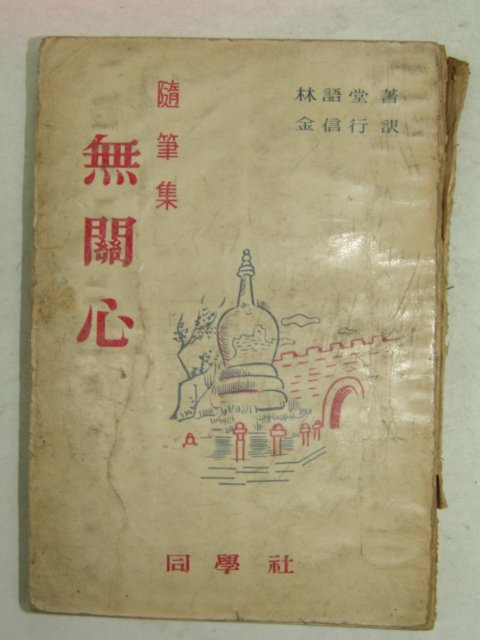 林語堂 著
金信行 訳
隨筆集
無關心
同學社